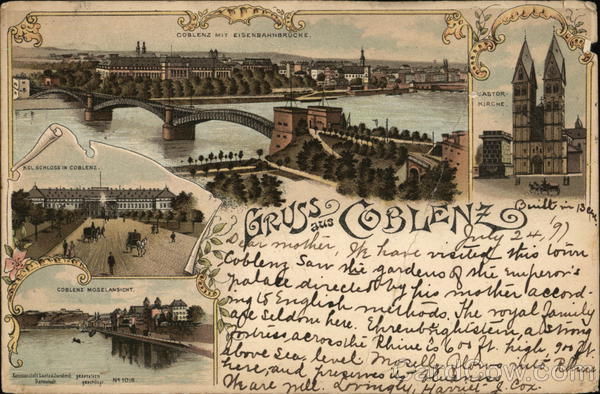 COBLENZ MIT EISENBAHNBRÜCKE.
CASTOR-
KIRCHE.
KGL. SCHLOSS IN COBLENZ.
GRUSS aus COBLENZ
Built in
July 24, '97
Dear mother. We have visited this town
Coblenz Saw the gardens of the emperor's
palace directed by his mother accord-
ing to English methods. The royal family
are seldom here. Ehrenbreitstein a strong
fortress across the Rhine is 400 ft. high, 900 ft.
above Sea level. Moselle flows into Rhine
here, and preserves its blueness.
We are well. Lovingly, Harriet J. Cox.
COBLENZ MOSELANSICHT.
Kunstanstalt
Darmstadt
gesetzlich
geschützt.
No 1018.
CardCow.com